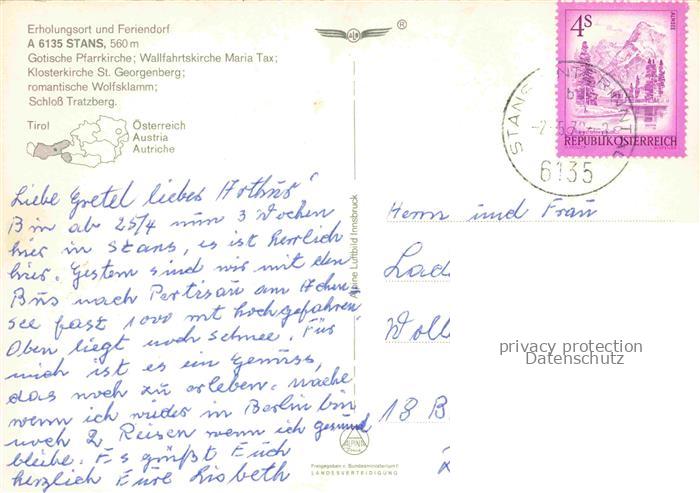 Erholungsort und Feriendorf
A 6135 STANS, 560 m
Gotische Pfarrkirche; Wallfahrtskirche Maria Tax;
Klosterkirche St. Georgenberg;
romantische Wolfsklamm;
Schloß Tratzberg.
Tirol
Österreich
Austria
Autriche
ALPINE
®
4S
ALMSEE
REPUBLIK ÖSTERREICH
STANS
b
6135
Liebe Gretel lieber Arthur!
Bin ab 25/4 nun 3 Wochen
hier in Stans, es ist herrlich
hier. Gestern sind wir mit den
Bus nach Pertisau am Achen
see fast 1000 mt hochgefahren
Oben liegt noch Schnee. Für
mich ist es ein Genuss,
das noch zu erleben. mache
wenn ich wieder in Berlin bin
noch 2 Reisen wenn ich gesund
bleibe. Es grüßt Euch
herzlich Eure Lisbeth
Alpine Luftbild Innsbruck
ALPINE
Freigegeben v. Bundesministerium f.
LANDESVERTEIDIGUNG
Herrn und Frau
Lad
Woll
18 B
privacy protection
Datenschutz